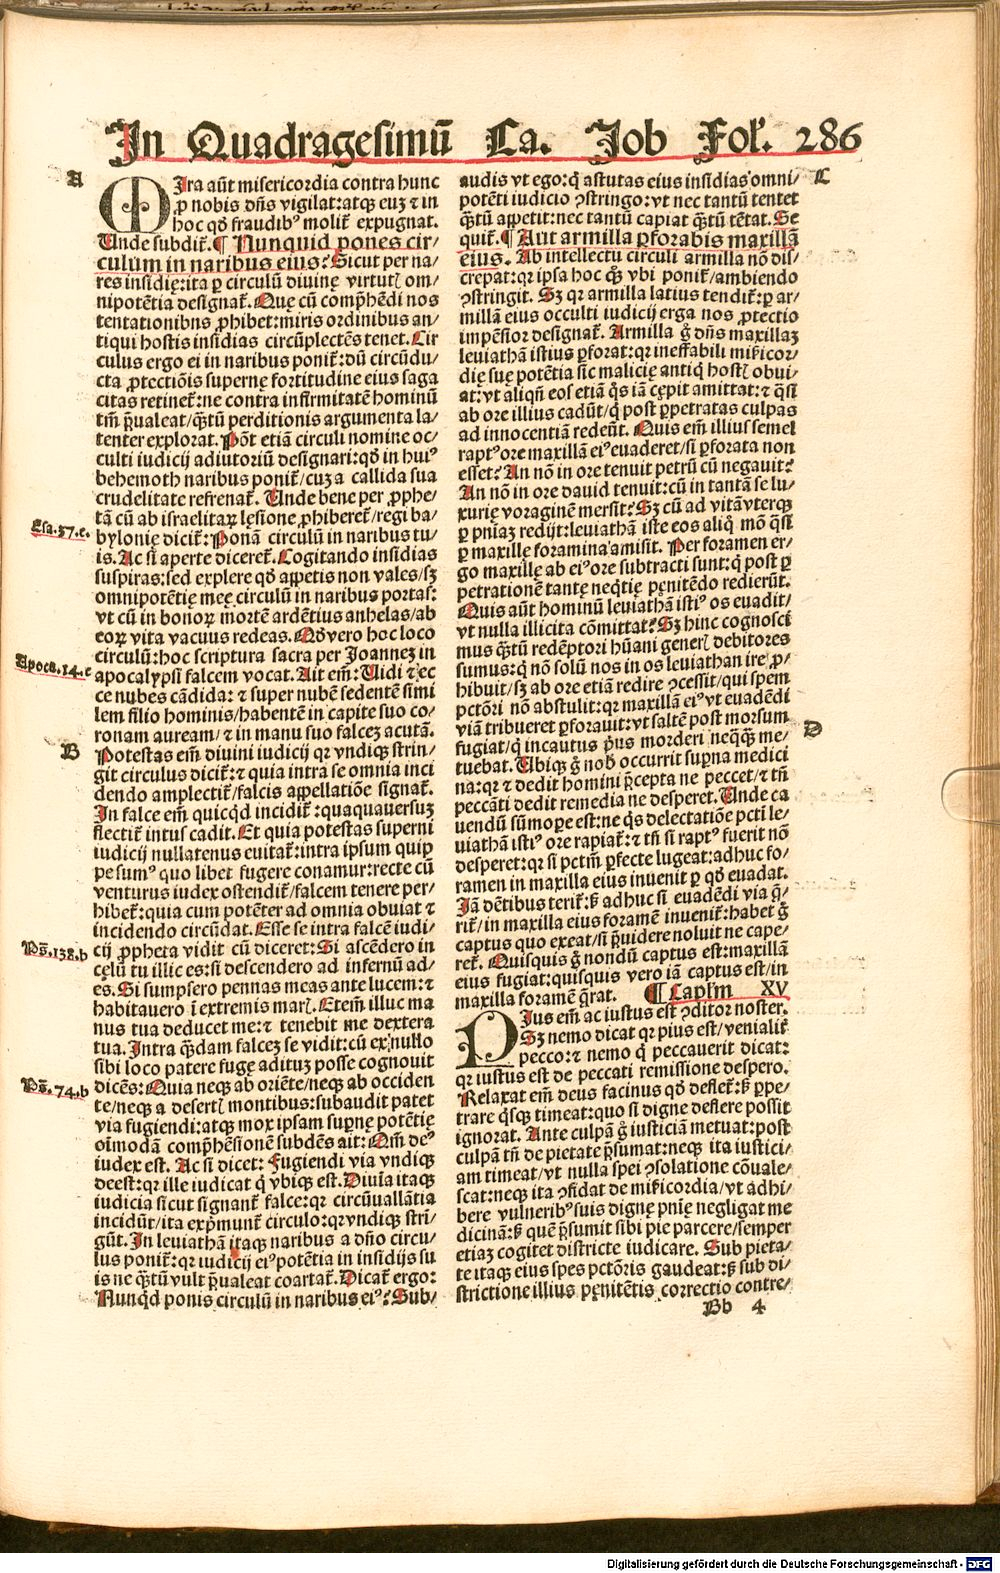 In Quadragesimū Ca. Job Fol'. 286
A
MIra aūt misericordia contra hunc
ꝓ nobis dn̄s vigilat:atqꝫ euꝫ ⁊ in
hoc qđ fraudibꝰ molit̄ expugnat.
Unde subdit̄.¶ Nunquid pones cir/
culum in naribus eius? Sicut per na/
res insidię:ita ꝑ circulū diuinę virtutꝭ om/
nipotētia designat̄. Quę cū comp̄hēdi nos
tentationibus ꝓhibet:miris ordinibus an/
tiqui hostis insidias circūplectēs tenet. Cir
culus ergo ei in naribus ponit̄:dū circūdu/
cta ꝓtectiōis supernę fortitudine eius saga
citas retinet̄:ne contra infirmitatē hominū
tm̄ p̄ualeat/qȝtū perditionis argumenta la/
tenter explorat. Pōt etiā circuli nomine oc/
culti iudicij adiutoriū designari:qđ in huiꝰ
behemoth naribus ponit̄/cuꝫ a callida sua
crudelitate refrenat̄. Unde bene per ꝓphe/
tā cū ab israelitaꝝ lęsione ꝓhiberet̄/regi ba/
Esa.37.e.
bylonię dicit̄:Ponā circulū in naribus tu/
is. Ac si aperte diceret̄. Cogitando insidias
suspiras:sed explere qđ appetis non vales/sꝫ
omnipotētię meę circulū in naribus portas:
vt cū in bonoꝝ mortē ardētius anhelas/ab
eoꝝ vita vacuus redeas. Qđ vero hoc loco
circulū:hoc scriptura sacra per Joanneꝫ in
Apoca.14.c
apocalypsi falcem vocat. Ait em̄: Uidi ⁊ ec
ce nubes cādida: ⁊ super nubē sedentē simi
lem filio hominis/habentē in capite suo co/
ronam auream/⁊ in manu suo falceꝫ acutā.
B
Potestas em̄ diuini iudicij qꝛ vndiqꝫ strin/
git circulus dicit̄:⁊ quia intra se omnia inci
dendo amplectit̄/falcis appellatiōe signat̄.
In falce em̄ quicqđ incidit̄ :quaquauersuꝫ
flectit̄ intus cadit. Et quia potestas superni
iudicij nullatenus euitat̄:intra ipsum quip
pe sumꝰ quo libet fugere conamur:recte cū
venturus iudex ostendit̄/falcem tenere per/
hibet̄:quia cum potēter ad omnia obuiat ⁊
incidendo circūdat. Esse se intra falcē iudi/
Pš.138.b
cij ꝓpheta vidit cū diceret: Si ascēdero in
cęlū tu illic es:si descendero ad infernū ad/
es. Si sumpsero pennas meas ante lucem:⁊
habitauero ī extremis marꝭ. Etem̄ illuc ma
nus tua deducet me:⁊ tenebit me dextera
tua. Intra qȝdam falceꝫ se vidit:cū ex nullo
sibi loco patere fugę adituꝫ posse cognouit
Pš.74.b
dicēs: Quia neqꝫ ab oriēte/neqꝫ ab occiden
te/neqꝫ a desertꝭ montibus:subaudit patet
via fugiendi:atqꝫ mox ipsam supnę potētię
oīmodā comp̄hēsionē subdēs ait: Qm̄ deꝰ
iudex est. Ac si dicet: Fugiendi via vndiqꝫ
deest:qꝛ ille iudicat q̄ vbiqꝫ est. Diuīa itaqꝫ
iudicia sicut signant̄ falce:qꝛ circūuallātia
incidūt/ita exp̄munt̄ circulo:qꝛ vndiqꝫ stri/
gūt. In leuiathā itaqꝫ naribus a dn̄o circu/
lus ponit̄:qꝛ iudicij eiꝰ potētia in insidijs su
is ne qȝtū vult p̄ualeat coartat̄. Dicat̄ ergo:
Nunqđ ponis circulū in naribus eiꝰ? Sub/
C
audis vt ego:q̄ astutas eius insidias omni/
potēti iudicio ꝯstringo:vt nec tantū tentet
qȝtū appetit:nec tantū capiat qȝtū tētat. Se
quit̄.¶ Aut armilla ꝑforabis maxillā
eius. Ab intellectu circuli armilla nō dis/
crepat:qꝛ ipsa hoc qȝ vbi ponit̄/ambiendo
ꝯstringit. Sꝫ qꝛ armilla latius tendit̄:ꝑ ar/
millā eius occulti iudicij erga nos ꝓtectio
impēsior designat̄. Armilla g̊ dn̄s maxillaꝫ
leuiathā istius ꝑforat:qꝛ ineffabili mīcor/
dię suę potētia sic malicię antiq̄ hostꝭ obui/
at:vt aliqn̄ eos etiā q̊s iā cępit amittat:⁊ qȝsi
ab ore illius cadūt/q̄ post ꝑpetratas culpas
ad innocentiā redeūt. Quis em̄ illius semel
raptꝰ ore maxillā eiꝰ euaderet/si ꝑforata non
esset? An nō in ore tenuit petrū cū negauit?
An nō in ore dauid tenuit:cū in tantā se lu/
xurię voraginē mersit? Sꝫ cū ad vitā vterqꝫ
ꝑ pn̄iaꝫ redijt:leuiathā iste eos aliq̊ mō qȝsi
ꝑ maxillę foramina amisit. Per foramen er/
go maxillę ab eiꝰ ore subtracti sunt:q̄ post ꝑ
petrationē tantę neqtię pęnitēdo redierūt.
Quis aūt hominū leuiathā istiꝰ os euadit/
vt nulla illicita cōmittat? Sꝫ hinc cognosci
mus qȝtū redēptori hūani generꝭ debitores
sumus:q̄ nō solū nos in os leuiathan ire ꝓ/
hibuit/sꝫ ab ore etiā redire ꝯcessit/qui spem
pctōri nō abstulit:qꝛ maxillā eiꝰ vt euadēdi
viā tribueret ꝑforauit:vt saltē post morsum
D
fugiat/q̄ incautus p̄us morderi neqȝqȝ me/
tuebat. Ubiqꝫ g̊ nob̄ occurrit suꝑna medici
na:qꝛ ⁊ dedit homini p̄cepta ne peccet/⁊ tn̄
peccāti dedit remedia ne desperet. Unde ca
uendū sūmoꝑe est:ne q̊s delectatiōe pcti le/
uiathā istiꝰ ore rapiat̄:⁊ tn̄ si raptꝰ fuerit nō
desperet:qꝛ si pctm̄ ꝑfecte lugeat:adhuc fo/
ramen in maxilla eius inuenit ꝑ qđ euadat.
Iā dētibus terit̄:ꝫ adhuc si euadēdi via q̄/
rit̄/in maxilla eius foramē inuenit̄:habet g̊
captus quo exeat/si p̄uidere noluit ne cape/
ret̄. Quisquis g̊ nondū captus est:maxillā
eius fugiat:quisquis vero iā captus est/in
maxilla foramē q̄rat. ¶ Capłm XV
PIus em̄ ac iustus est ꝯditor noster.
Sꝫ nemo dicat qꝛ pius est/venialit̄
pecco:⁊ nemo q̄ peccauerit dicat:
qꝛ iustus est de peccati remissione despero.
Relaxat em̄ deus facinus qđ deflet̄:ꝫ ꝑpe/
trare q̊sqꝫ timeat:quo si digne deflere possit
ignorat. Ante culpā g̊ iusticiā metuat:post
culpā tn̄ de pietate p̄sumat:neqꝫ ita iustici/
am timeat/vt nulla spei ꝯsolatione cōuale/
scat:neqꝫ ita ꝯfidat de mīcordia/vt adhi/
bere vulneribꝰ suis dignę pnię negligat me
dicinā:ꝫ quē p̄sumit sibi pie parcere/semper
etiaꝫ cogitet districte iudicare. Sub pieta/
te itaqꝫ eius spes pctōris gaudeat:ꝫ sub di/
strictione illius pęnitētis correctio contre/
Bb 4
Digitalisierung gefördert durch die Deutsche Forschungsgemeinschaft - DFG